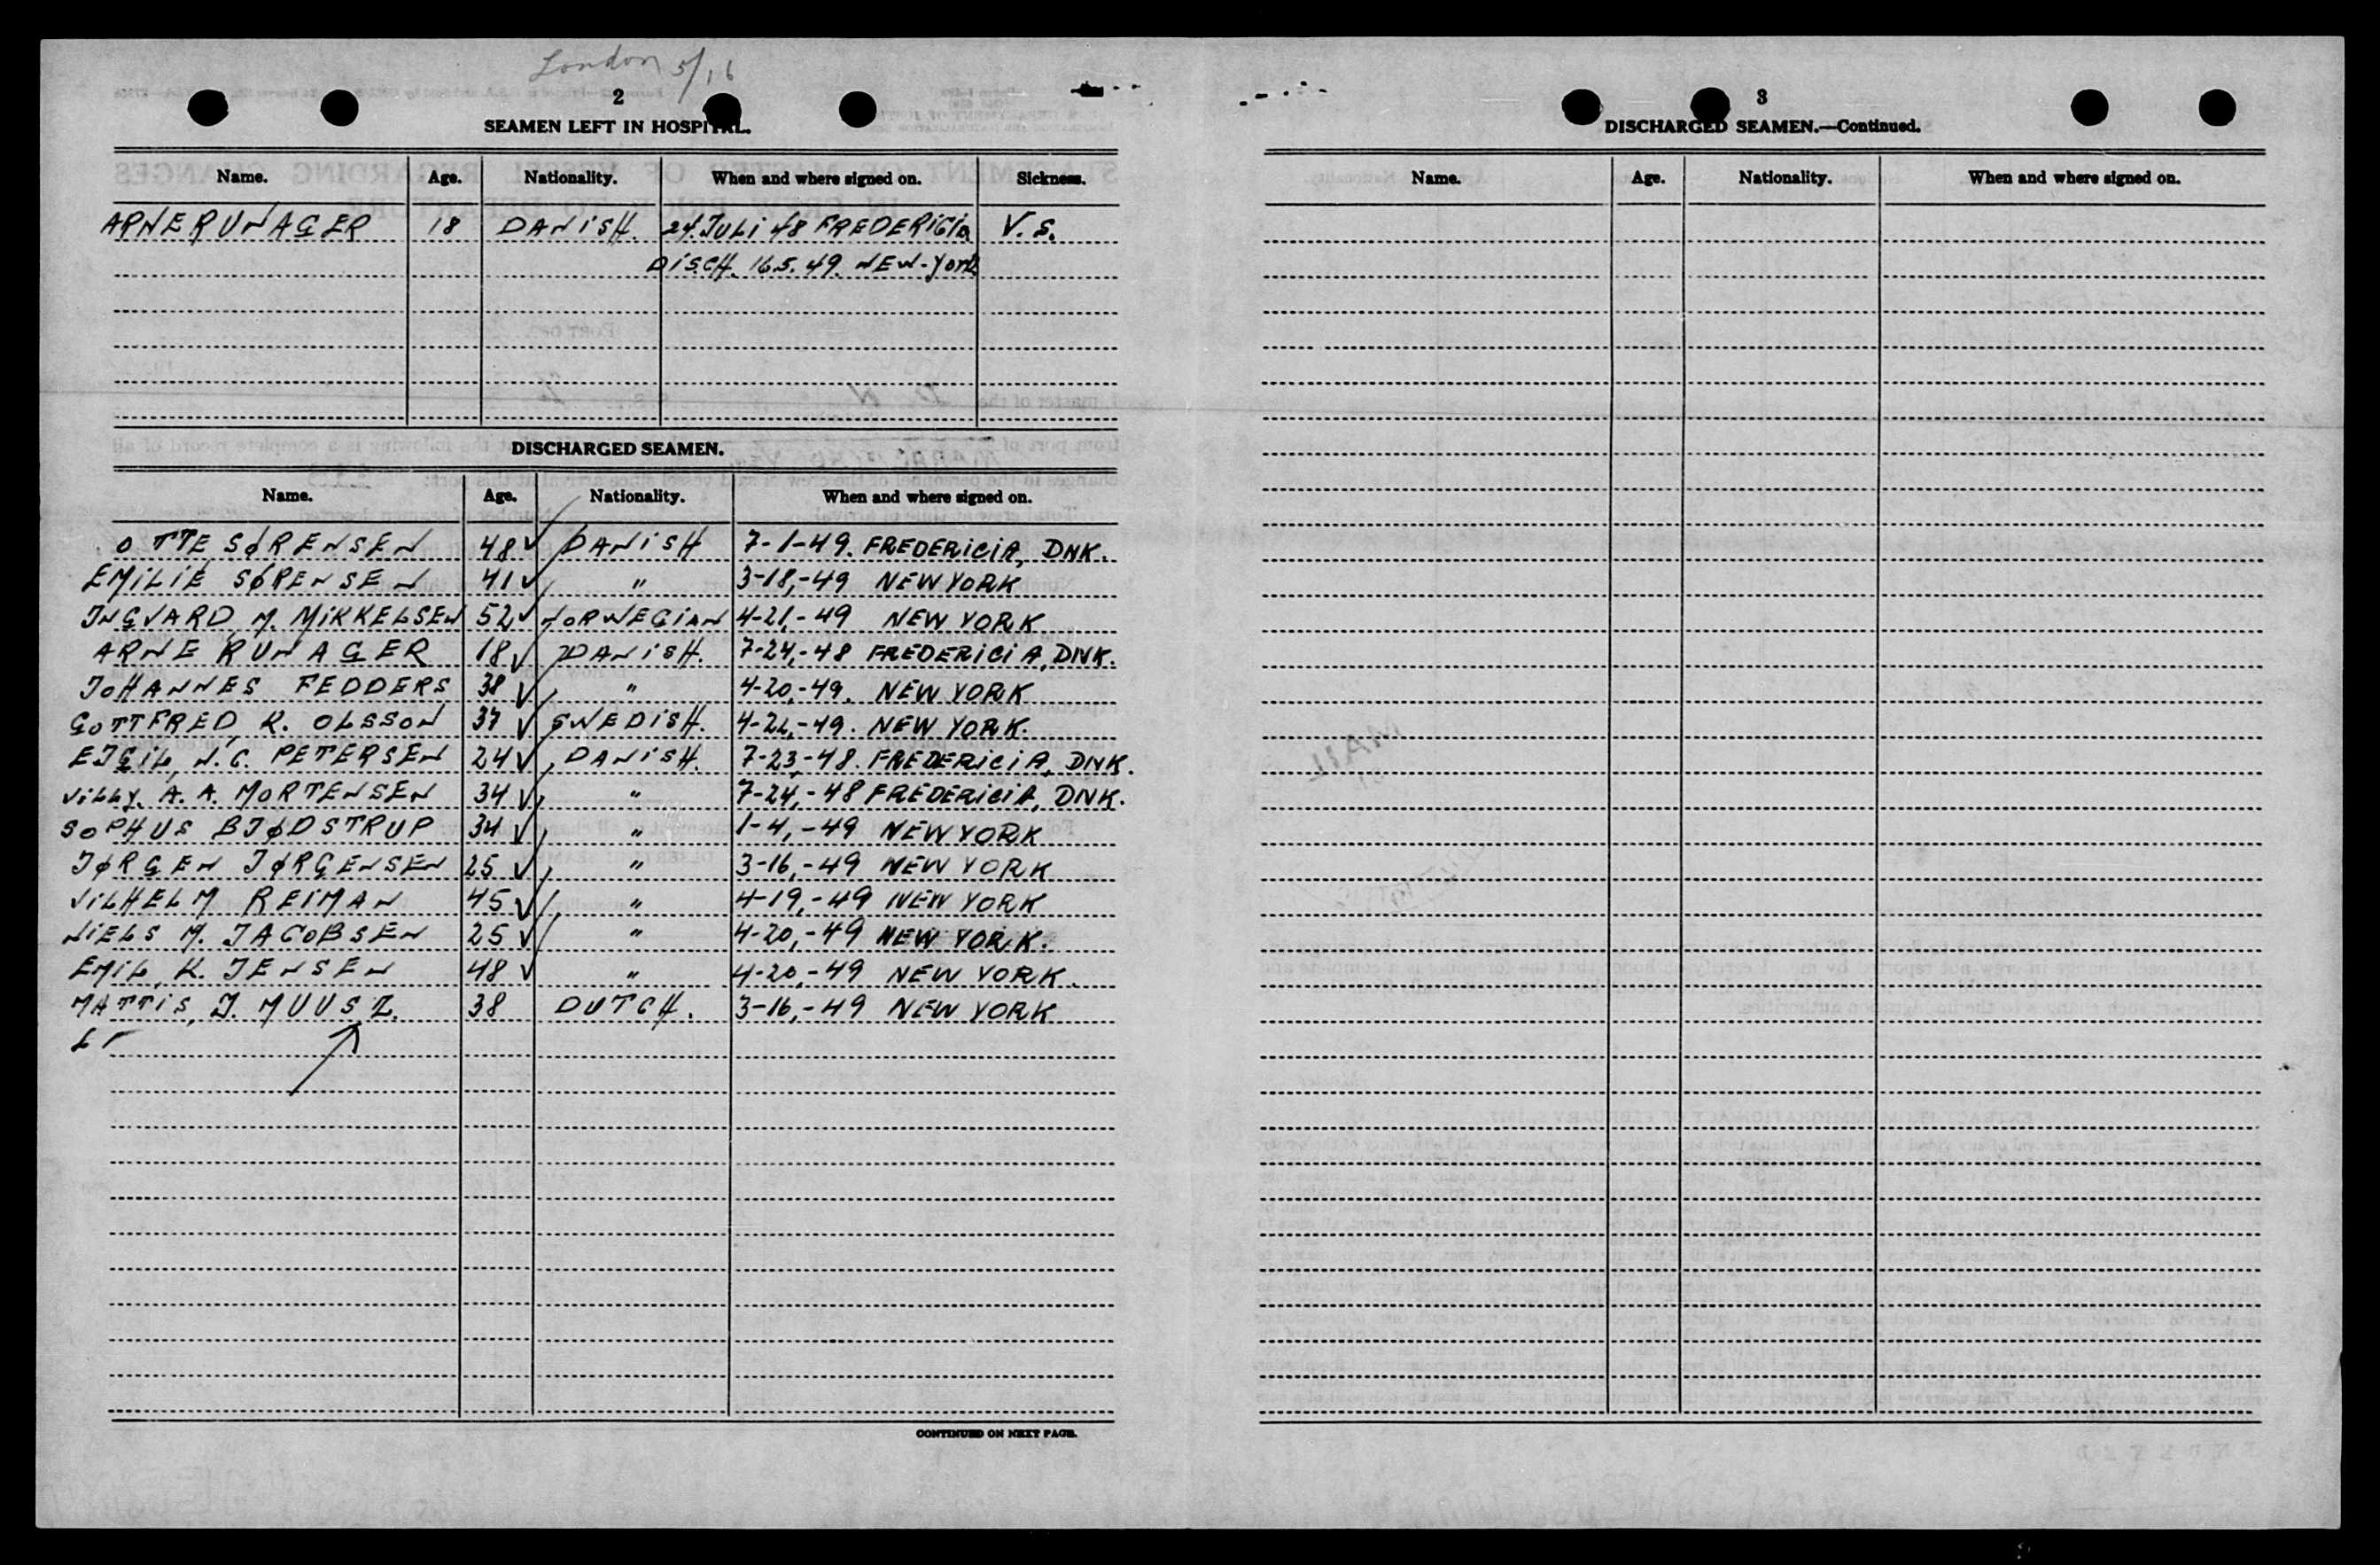 London 5/16
2
SEAMEN LEFT IN HOSPITAL.
Name. Age. Nationality. When and where signed on. Sickness.
ARNE RUNAGER 18 DANISH. 24. JULI 48 FREDERICIA V. S.
DISCH. 16.5.49. NEW-YORK
DISCHARGED SEAMEN.
Name. Age. Nationality. When and where signed on.
OTTE SØRENSEN 48 ✓ DANISH 7-1-49. FREDERICIA, DNK.
EMILIE SØRENSEN 41 ✓ " 3-18,-49 NEW YORK
INGVARD, M. MIKKELSEN 52 ✓ NORWEGIAN 4-21,-49 NEW YORK
ARNE RUNAGER 18 ✓ DANISH. 7-24,-48 FREDERICIA, DNK.
JOHANNES FEDDERS 38 ✓ " 4-20,-49. NEW YORK
GOTTFRED, K. OLSSON 37 ✓ SWEDISH. 4-22,-49. NEW YORK.
EJGIL, N. C. PETERSEN 24 ✓ DANISH. 7-23,-48. FREDERICIA, DNK.
VILLY. A. A. MORTENSEN 34 ✓ " 7-24,-48 FREDERICIA, DNK.
SOPHUS BJØDSTRUP 34 ✓ " 1-4,-49 NEW YORK
JØRGEN JØRGENSEN 25 ✓ " 3-16,-49 NEW YORK
VILHELM REIMAN 45 ✓ " 4-19,-49 NEW YORK
NIELS M. JACOBSEN 25 ✓ " 4-20,-49 NEW YORK.
EMIL, K. JENSEN 48 ✓ " 4-20,-49 NEW YORK.
MATTIS, J. MUUSZ. 38 DUTCH. 3-16,-49 NEW YORK
CONTINUED ON NEXT PAGE.
3
DISCHARGED SEAMEN.—Continued.
Name. Age. Nationality. When and where signed on.